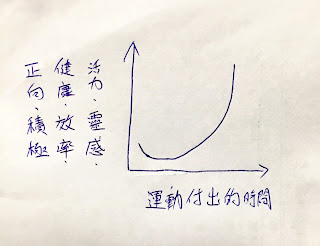 活力、靈感、
健康、效率、
正向、積極
運動付出的時間